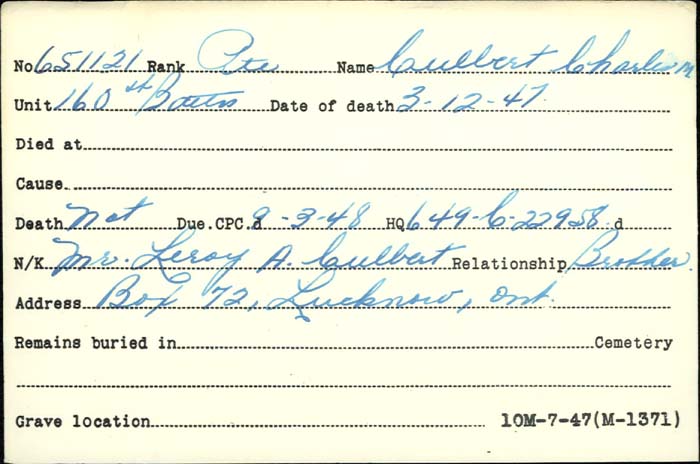 No 651121 Rank Pte Name Culbert Charles M
Unit 160 th Battn Date of death 3-12-47
Died at
Cause
Death Not Due.CPC.d 9-3-48 HQ 649-C-22958 d
N/K Mr. Leroy A. Culbert Relationship Brother.
Address Box 72, Lucknow, Ont.
Remains buried in Cemetery
Grave location 10M-7-47(M-1371)